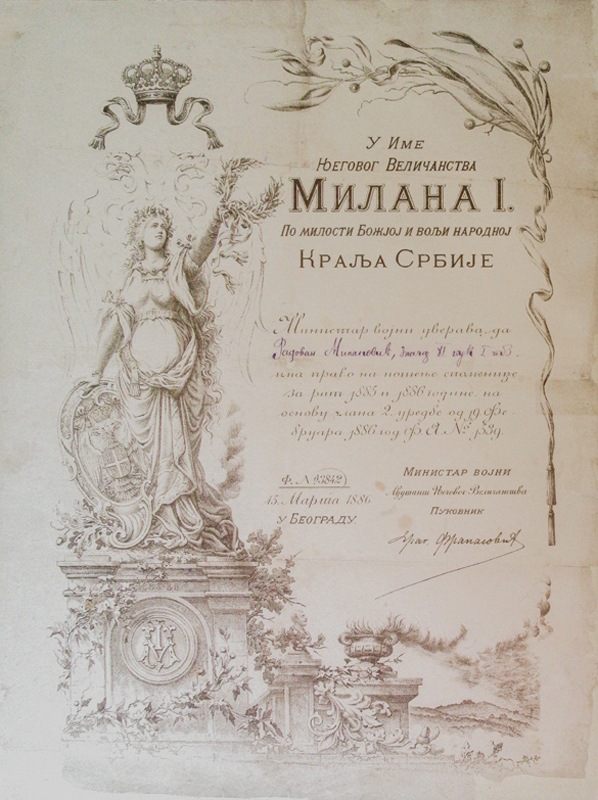 У Име
Његовог Величанства
МИЛАНА I.
По милости Божјој и вољи народној
Краља Србије
Министар војни уверава, да
Министар војни
има право на ношење споменице
Ађутант Његовог Величанства
за рат 1885 и 1886 године на
Пуковник
основу члана 2 уредбе од 19 Фе-
бруара 1886 год Ф. А. № 1539.
Ф. А 93842
15. Марта 1886
у Београду.